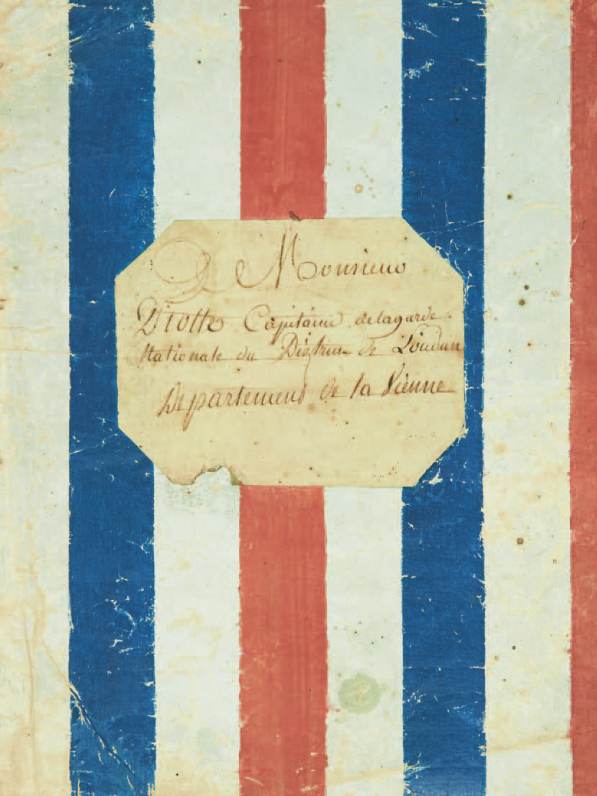 A Monsieur
Diotte Capitaine delagarde
Nationale du District de Loudun
Departement de la Vienne